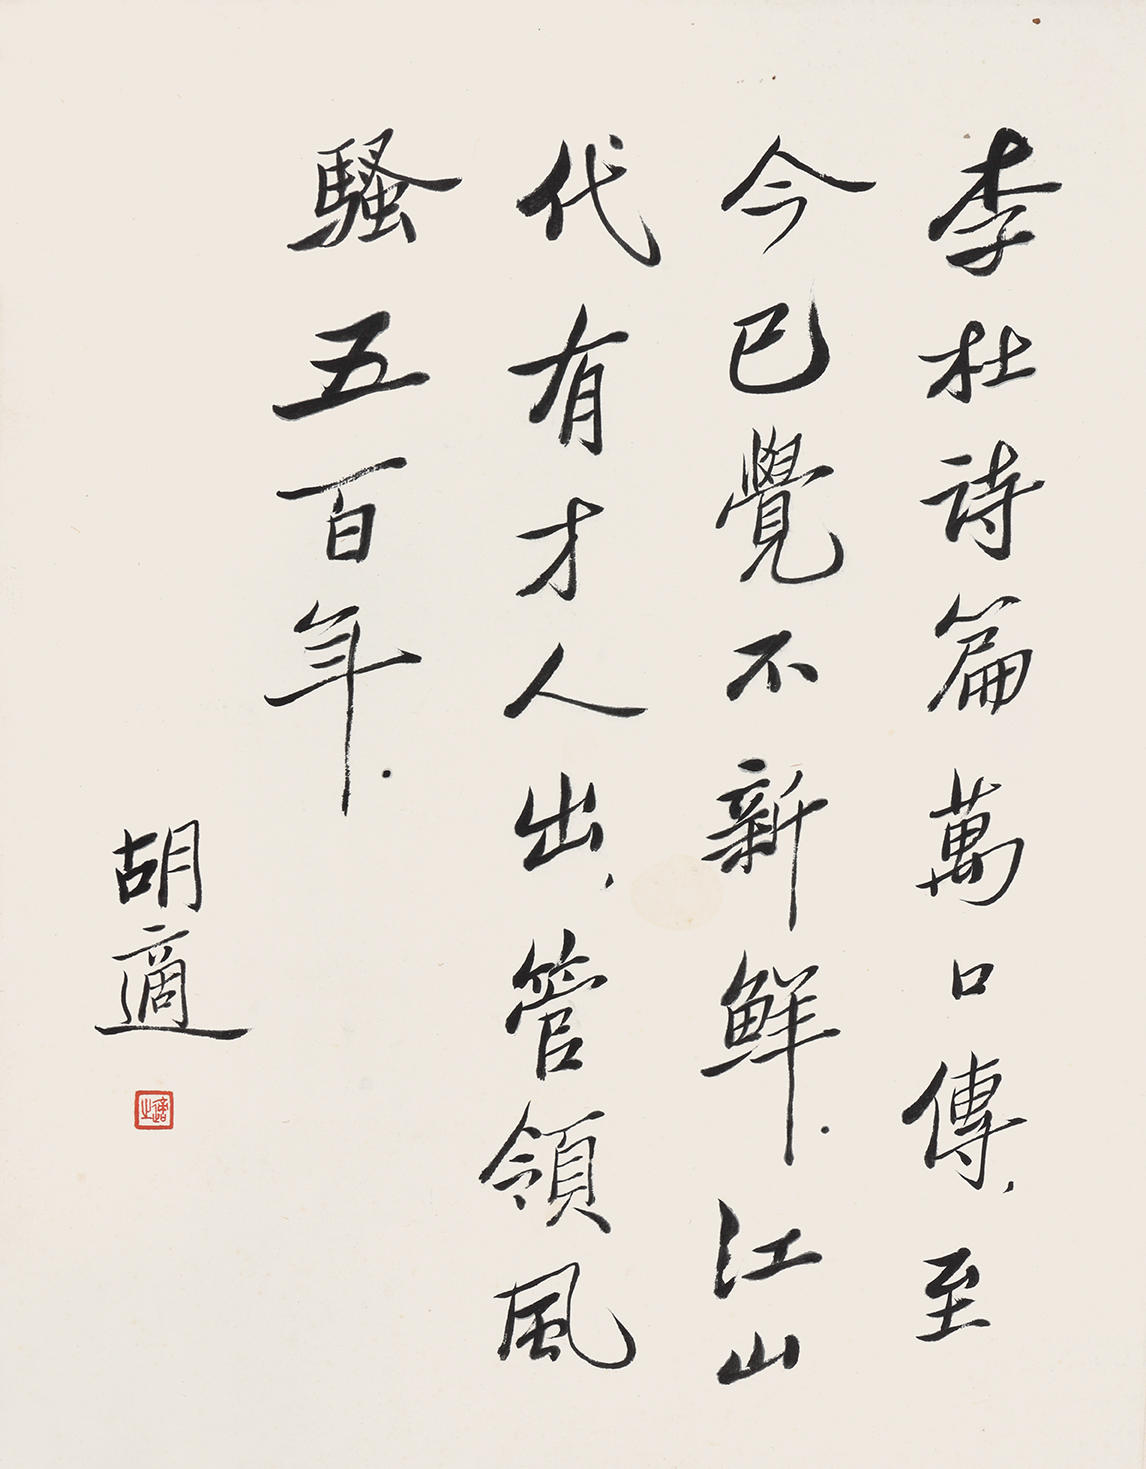 李杜詩篇萬口傳，至
今已覺不新鮮．江山
代有才人出，管領風
騷五百年．
胡適
適之